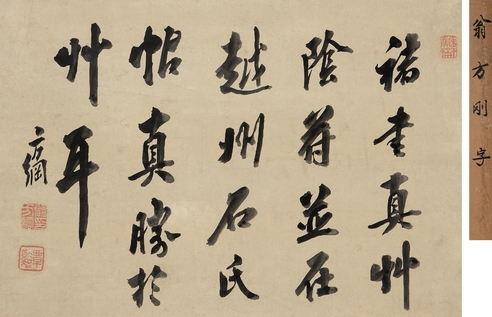 褚書真艸
陰符並在
越州石氏
帖真勝於
艸耳
方綱
翁方刚字